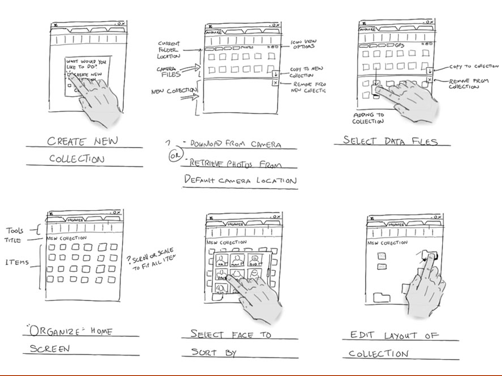 WHAT WOULD YOU
LIKE TO DO?
CREATE NEW
CREATE NEW
COLLECTION
CURRENT
FOLDER
LOCATION
CAMERA
FILES
NEW COLLECTION
ICON VIEW
OPTIONS
COPY TO NEW
COLLECTION
REMOVE FROM
NEW COLLECTION
? - DOWNLOAD FROM CAMERA
OR
- RETRIEVE PHOTOS FROM
DEFAULT CAMERA LOCATION
COPY TO COLLECTION
REMOVE FROM
COLLECTION
ADDING TO
COLLECTION
SELECT DATA FILES
TOOLS
TITLE
NEW COLLECTION
ITEMS
? SCROLL OR SCALE
TO FIT ALL ITEMS
"ORGANIZE" HOME
SCREEN
NEW COLLECTION
SELECT FACE TO
SORT BY
NEW COLLECTION
EDIT LAYOUT OF
COLLECTION